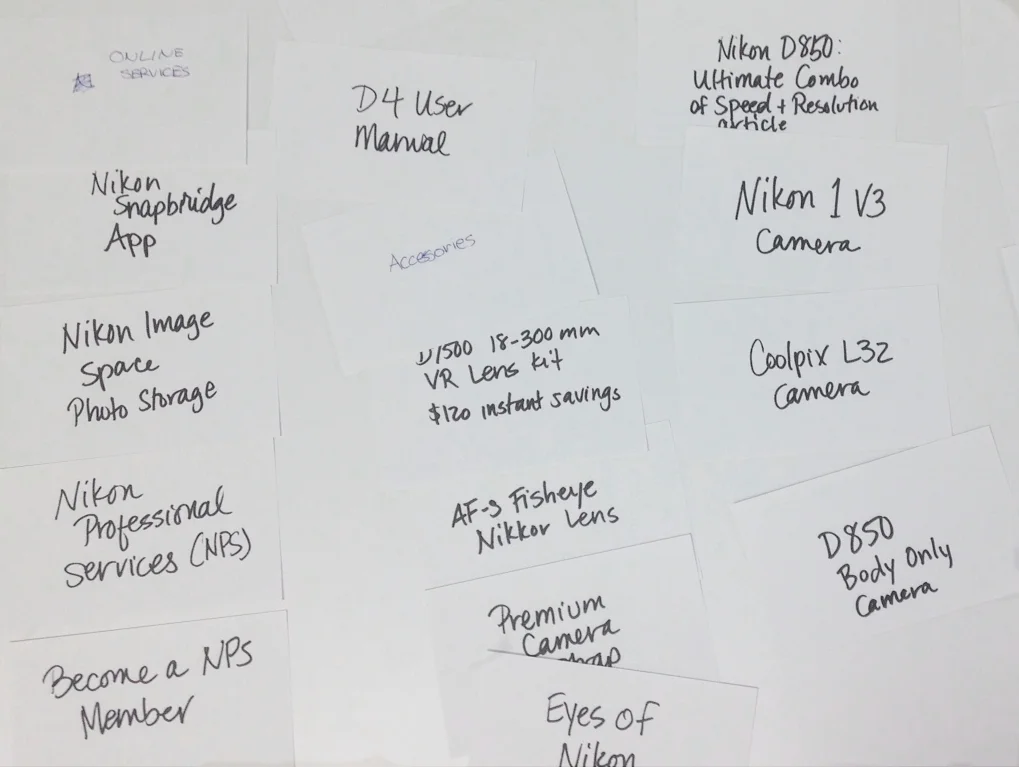 ONLINE
SERVICES
Nikon
Snapbridge
App
Nikon Image
Space
Photo Storage
Nikon
Professional
Services (NPS)
Become a NPS
Member
D4 User
Manual
Accesories
D7500 18-300 mm
VR Lens Kit
$120 instant savings
AF-S Fisheye
Nikkor Lens
Premium
Camera
Eyes of
Nikon
Nikon D850:
Ultimate Combo
of Speed + Resolution
article
Nikon 1 V3
Camera
Coolpix L32
Camera
D850
Body Only
Camera